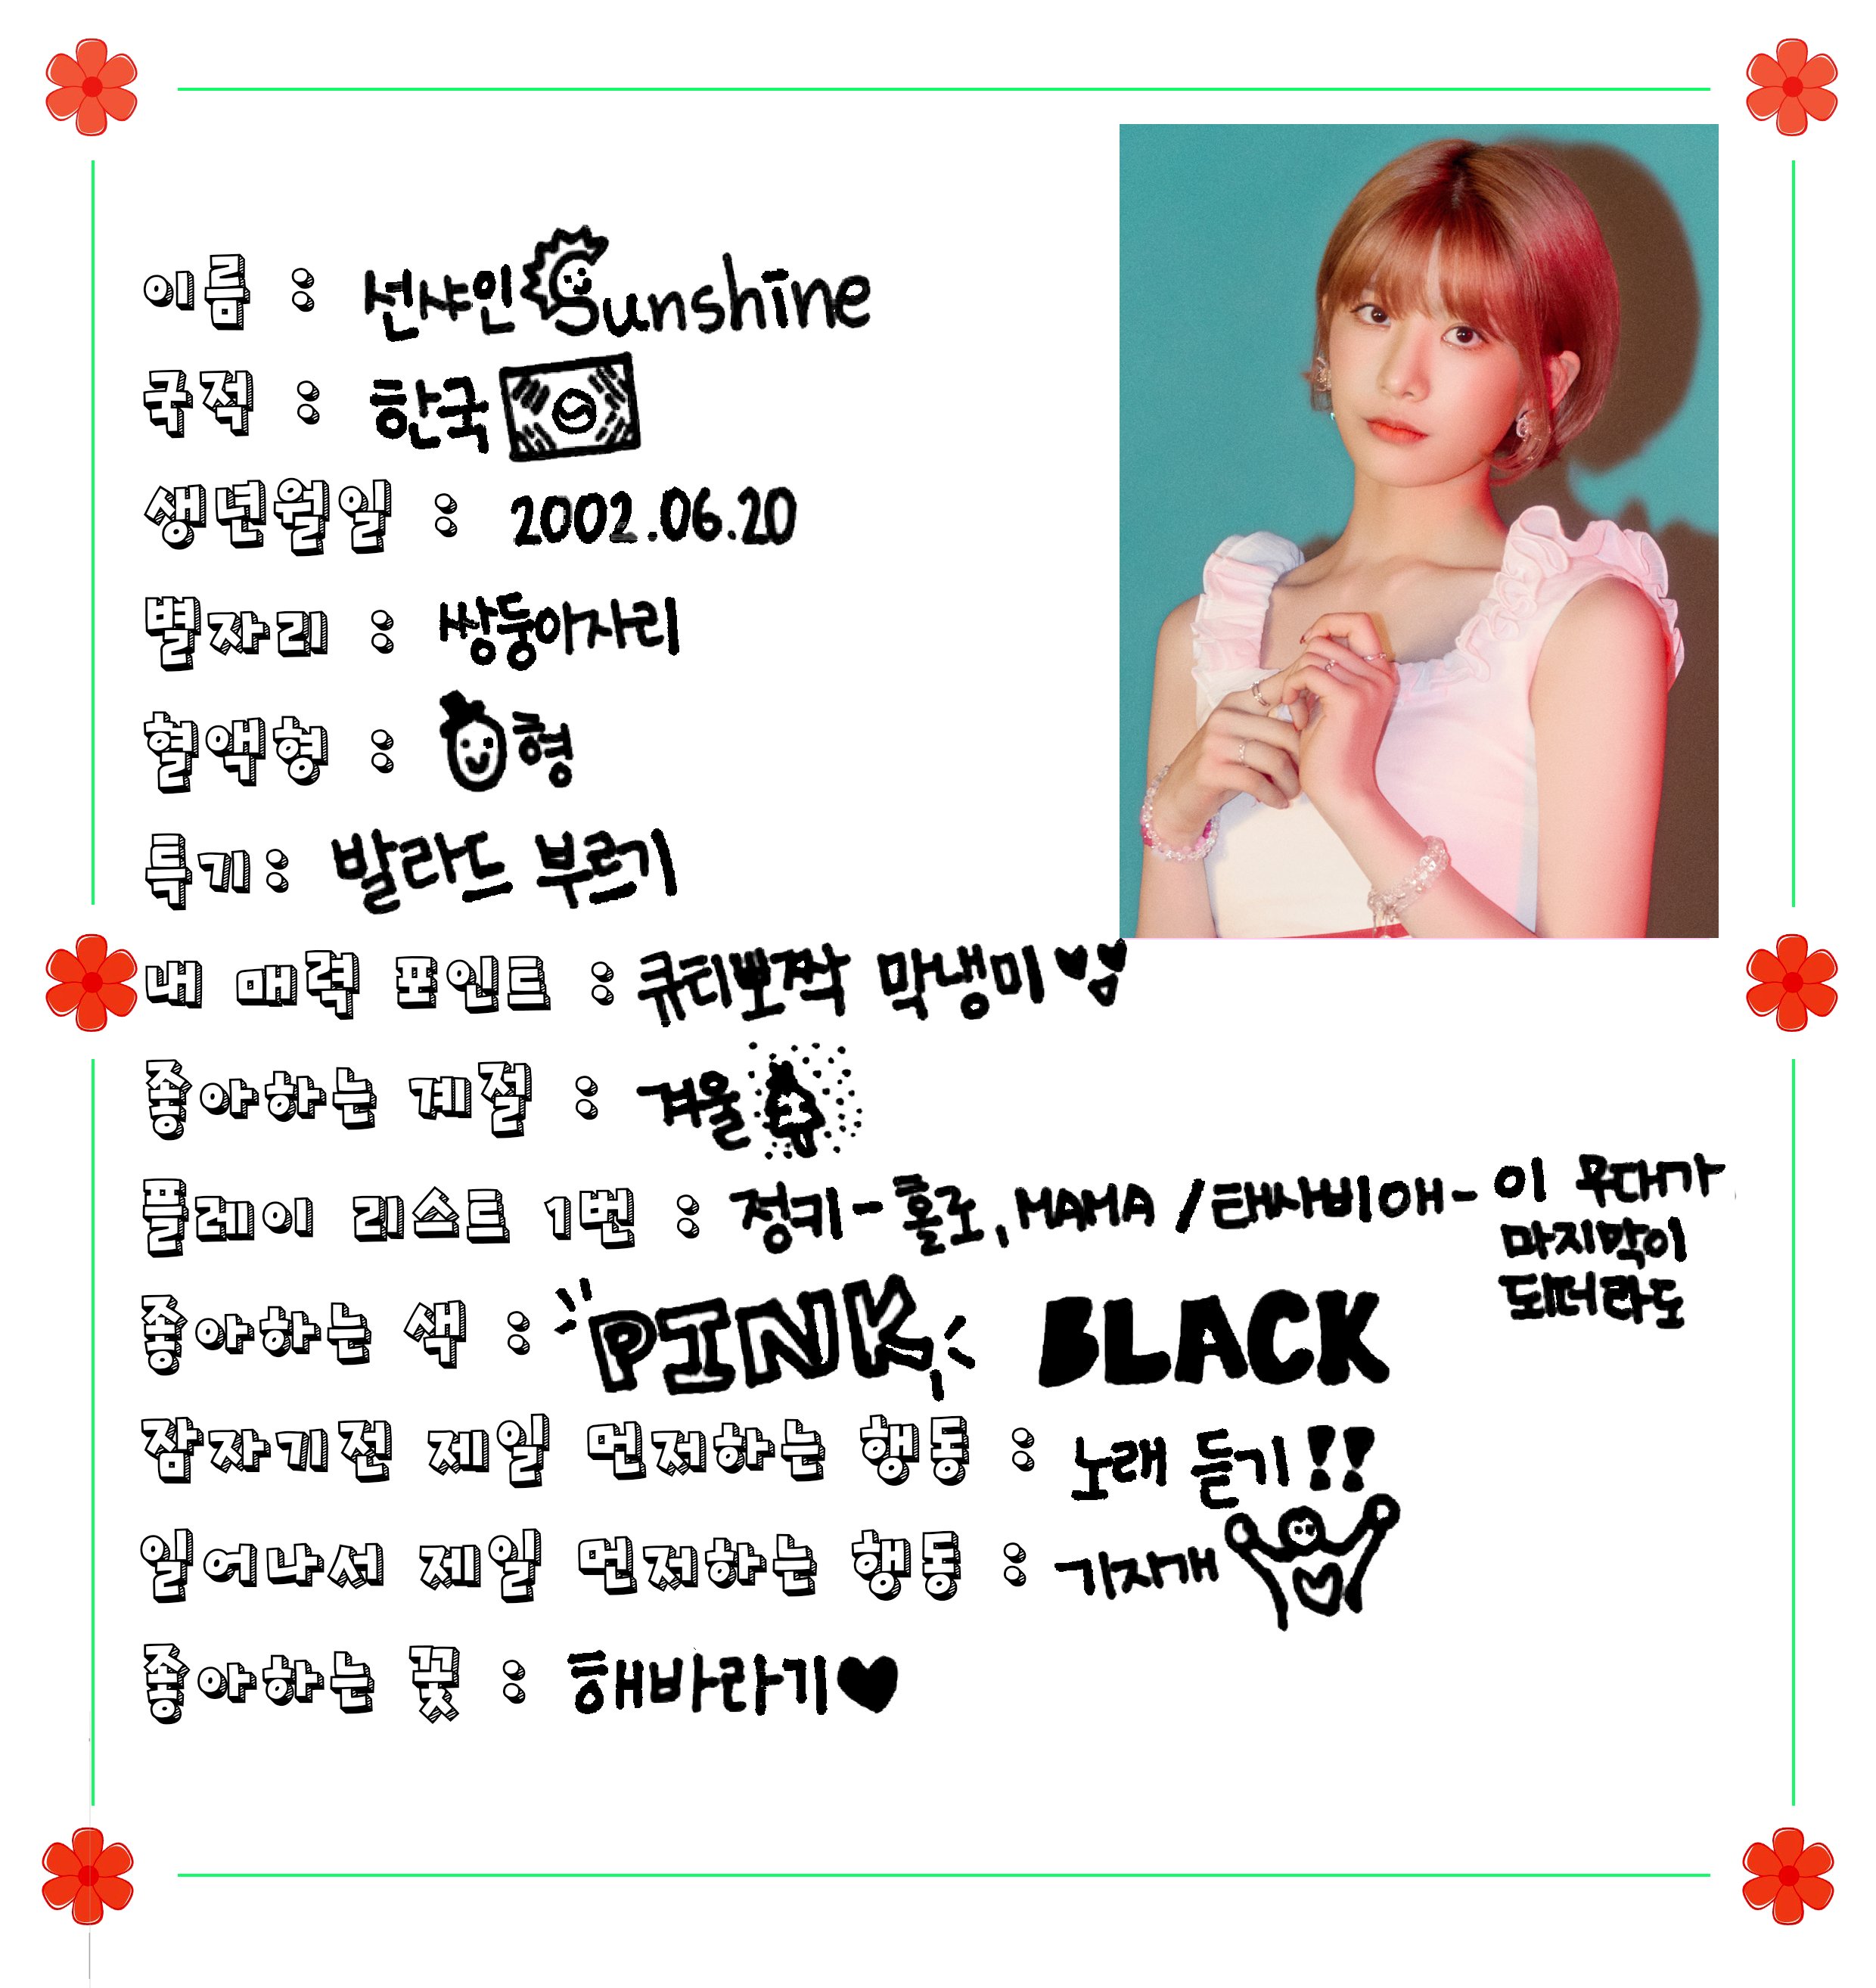 이름 : 선샤인 Sunshine
국적 : 한국
생년월일 : 2002.06.20
별자리 : 쌍둥이자리
혈액형 : O형
특기 : 발라드 부르기
내 매력 포인트 : 큐티뽀짝 막냉미
좋아하는 계절 : 겨울
플레이 리스트 1번 : 정키-홀로, MAMA / 태사비애- 이 무대가
마지막이
되더라도
좋아하는 색 : PINK BLACK
잠자기전 제일 먼저하는 행동 : 노래 듣기!!
일어나서 제일 먼저하는 행동 : 기지개
좋아하는 꽃 : 해바라기♥